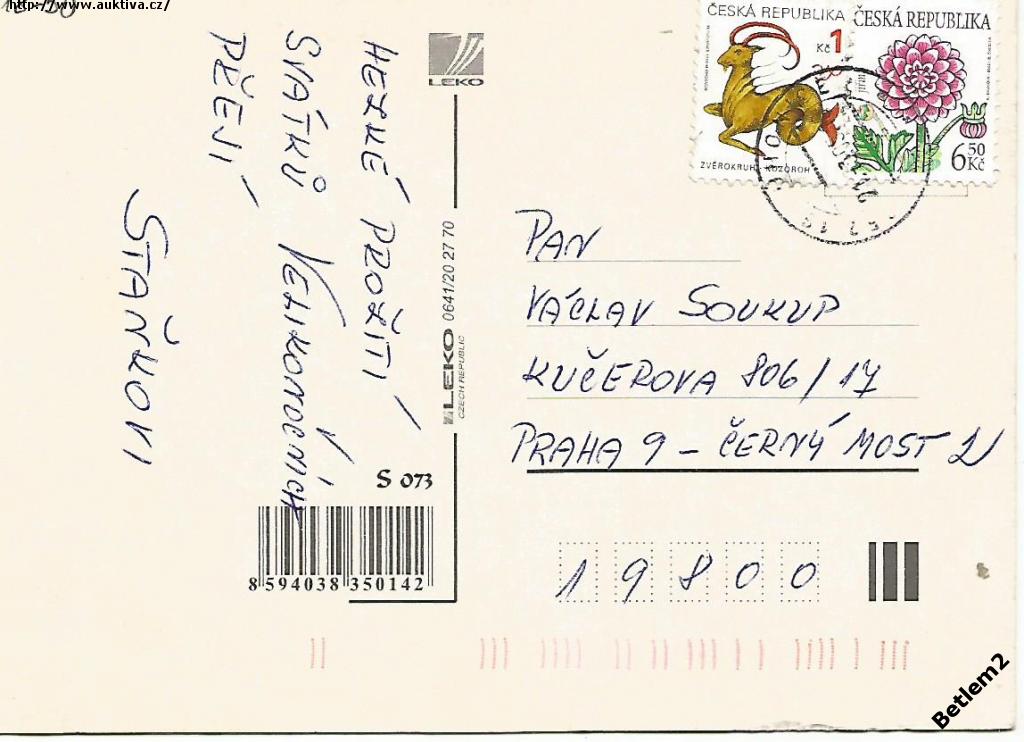 http://www.auktiva.cz/
HEZKÉ PROŽITÍ
SVÁTKŮ VELIKONOČNÍCH
PŘEJÍ
STAŇKOVI
LEKO
LEKO CZECH REPUBLIC 0641/20 27 70
S 073
8 594038 350142
ČESKÁ REPUBLIKA
1 Kč
ZVĚROKRUH - KOZOROH
ČESKÁ REPUBLIKA
6 50 Kč
PAN
VÁCLAV SOUKUP
KUČEROVA 806/17
PRAHA 9 – ČERNÝ MOST 2
19800
Betlem2